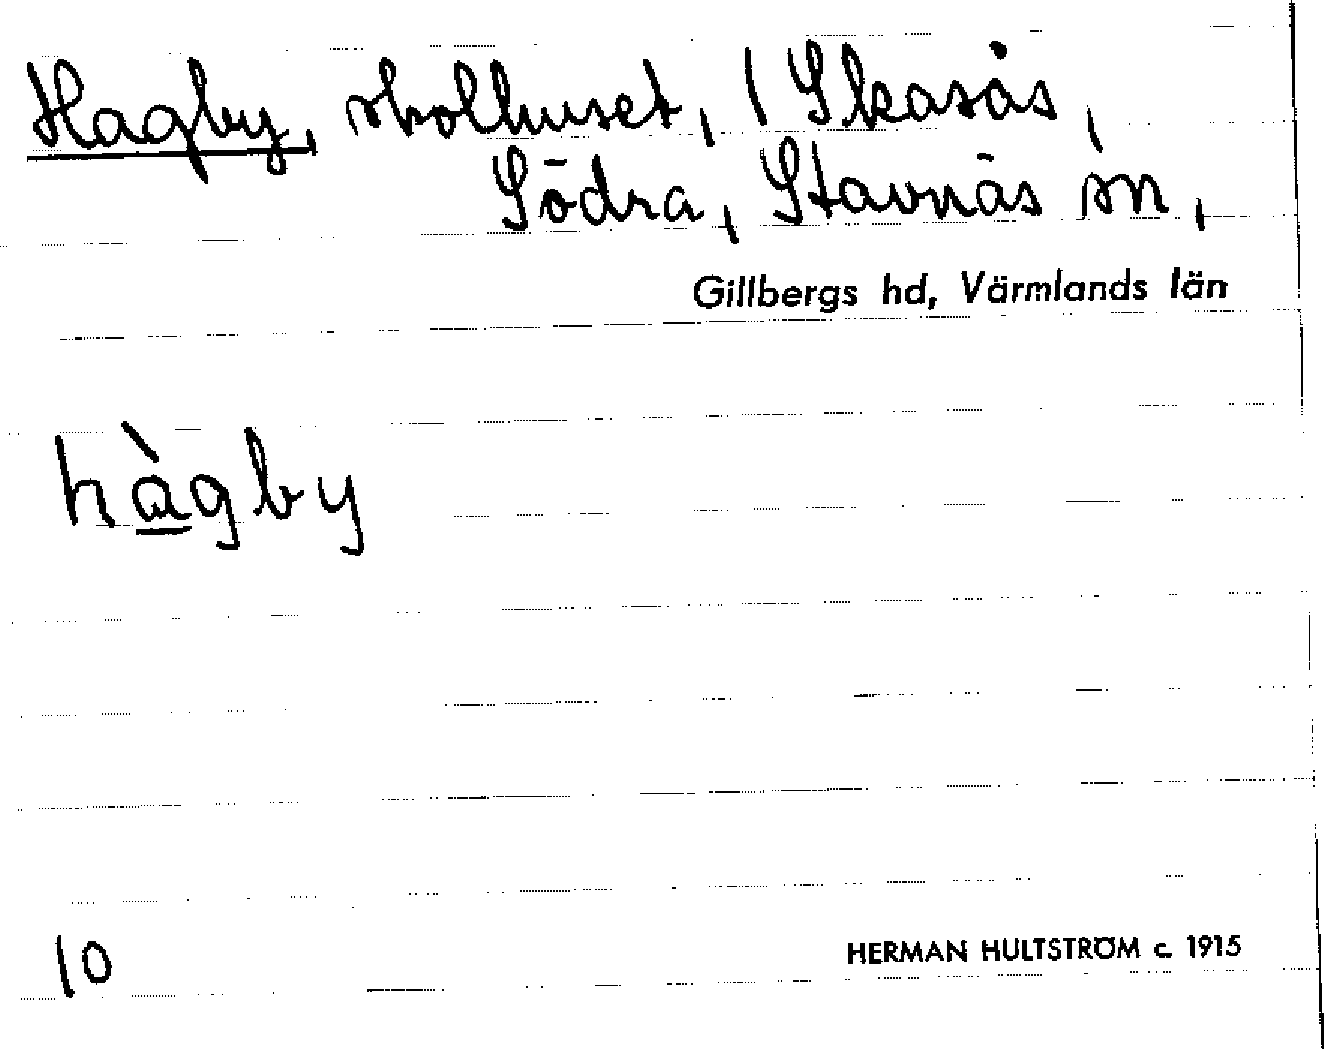 Hagby, skolhuset, / Skasås,
Södra, Stavnäs sn,
Gillbergs hd, Värmlands län
hа̀gby
10
HERMAN HULTSTRÖM c. 1915